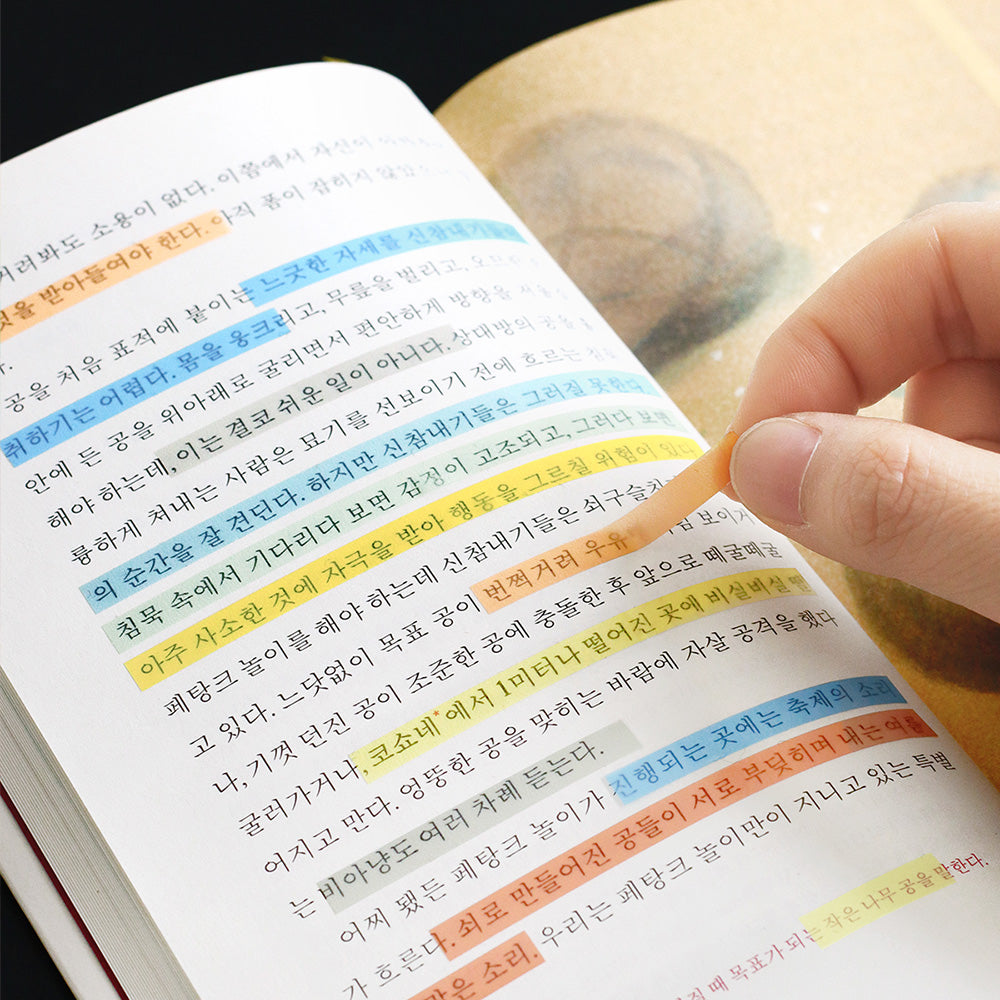 소용이 없다. 이쯤에서 자신이
것을 받아들여야 한다. 아직 폼이 잡히지
공을 처음 표적에 붙이는 느긋한 자세를
취하기는 어렵다. 몸을 웅크리고, 무릎을 벌리고,
안에 든 공을 위아래로 굴리면서 편안하게 방향을
해야 하는데, 이는 결코 쉬운 일이 아니다. 상대방의 공을
름하게 쳐내는 사람은 묘기를 선보이기 전에 흐르는
의 순간을 잘 견딘다. 하지만 신참내기들은 그러질 못한다.
침묵 속에서 기다리다 보면 감정이 고조되고, 그러다 보면
아주 사소한 것에 자극을 받아 행동을 그르칠 위험이 있다
페탕크 놀이를 해야 하는데 신참내기들은
고 있다. 느닷없이 목표 공이 번쩍거려 우유 보이거
나, 기껏 던진 공이 조준한 공에 충돌한 후 앞으로 떼굴떼굴
굴러가거나, 코쇼네*에서 1미터나 떨어진 곳에 비실비실 떨
어지고 만다. 엉뚱한 공을 맞히는 바람에 자살 공격을 했다
는 비아냥도 여러 차례 듣는다.
어찌 됐든 페탕크 놀이가 진행되는 곳에는 축제의 소리
가 흐른다. 쇠로 만들어진 공들이 서로 부딪히며 내는 여름
같은 소리. 우리는 페탕크 놀이만이 지니고 있는 특별
때 목표가 되는 작은 나무 공을 말한다.